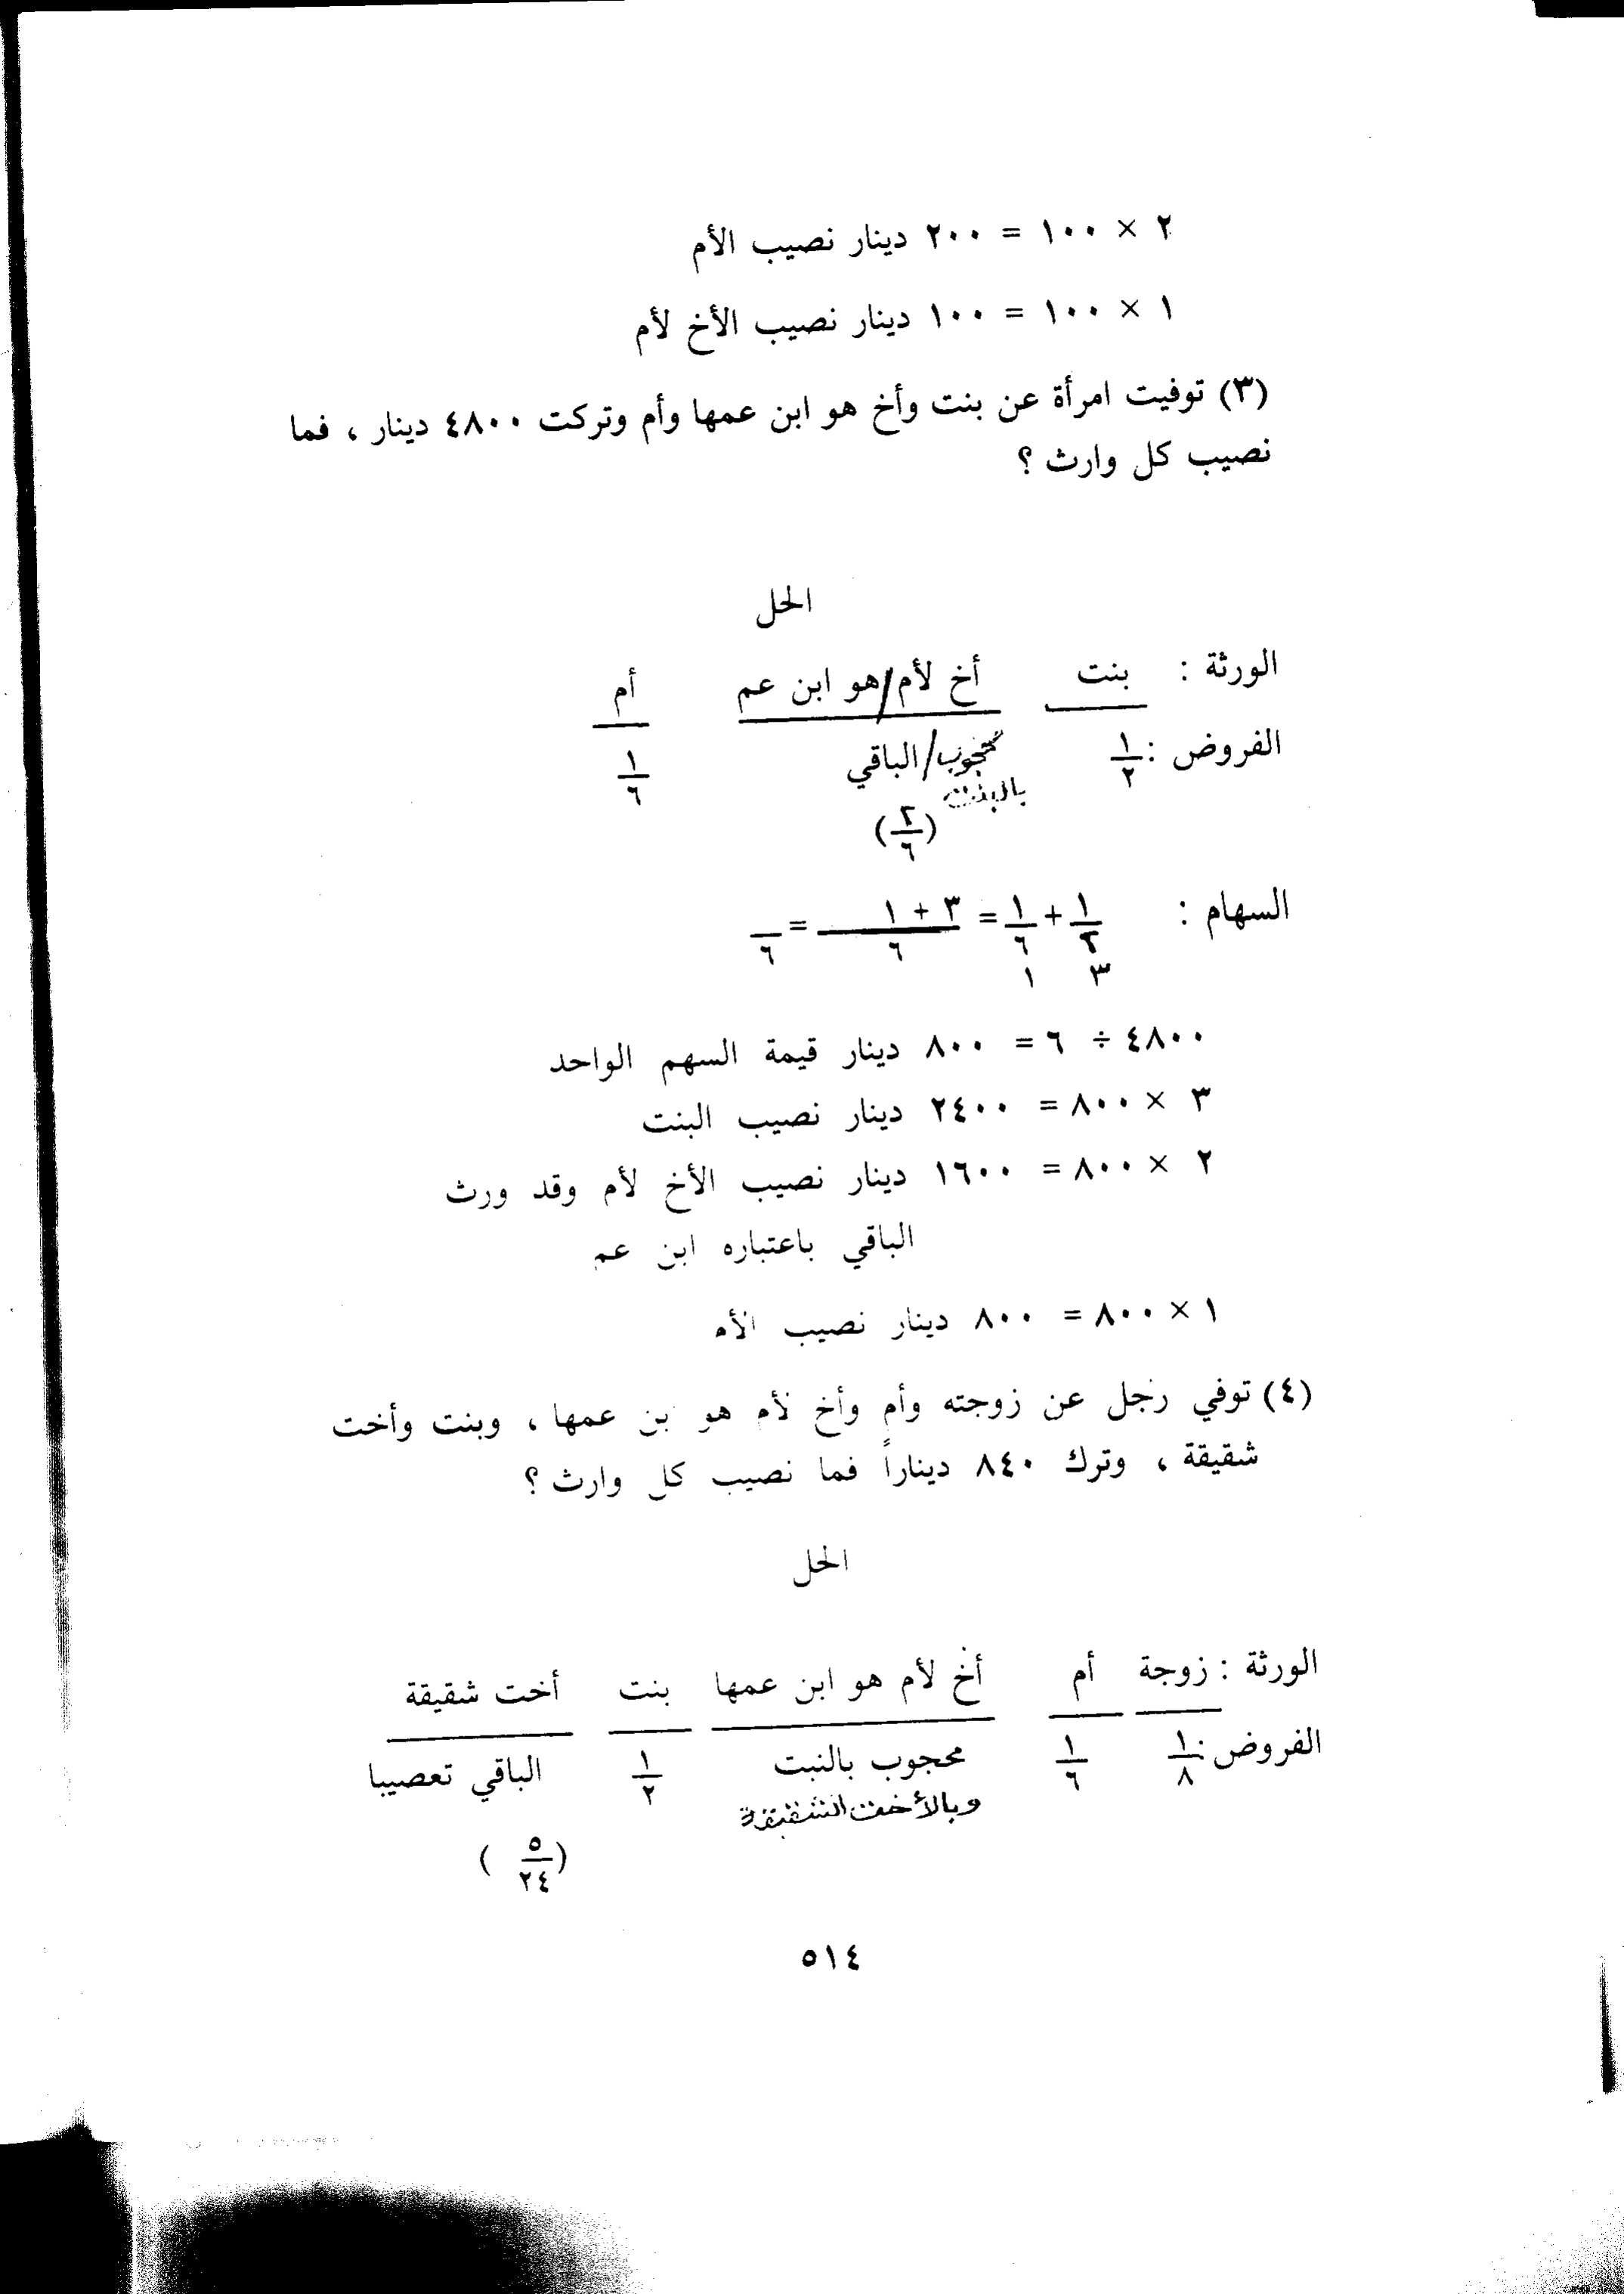 ٢ × ١٠٠ = ٢٠٠ دينار نصيب الأم
١ × ١٠٠ = ١٠٠ دينار نصيب الأخ لأم
(٣) توفيت امرأة عن بنت وأخ هو ابن عمها وأم وتركت ٤٨٠٠ دينار ، فما
نصيب كل وارث ؟
الحل
الورثة : بنت أخ لأم/هو ابن عم أم
الفروض : ١/٢ محجوب/الباقي ١/٦
بالبنت
(٢/٦)
السهام : ١/٢ + ١/٦ = ٣ + ١/٦ = /٦
٣ ١
٤٨٠٠ ÷ ٦ = ٨٠٠ دينار قيمة السهم الواحد
٣ × ٨٠٠ = ٢٤٠٠ دينار نصيب البنت
٢ × ٨٠٠ = ١٦٠٠ دينار نصيب الأخ لأم وقد ورث
الباقي باعتباره ابن عم
١ × ٨٠٠ = ٨٠٠ دينار نصيب الأم
(٤) توفي رجل عن زوجته وأم وأخ لأم هو بن عمها ، وبنت وأخت
شقيقة ، وترك ٨٤٠ ديناراً فما نصيب كل وارث ؟
الحل
الورثة : زوجة أم أخ لأم هو ابن عمها بنت أخت شقيقة
الفروض : ١/٨ ١/٦ محجوب بالنبت ١/٢ الباقي تعصيبا
وبالأخت الشقيقة
(٥/٢٤)
٥١٤